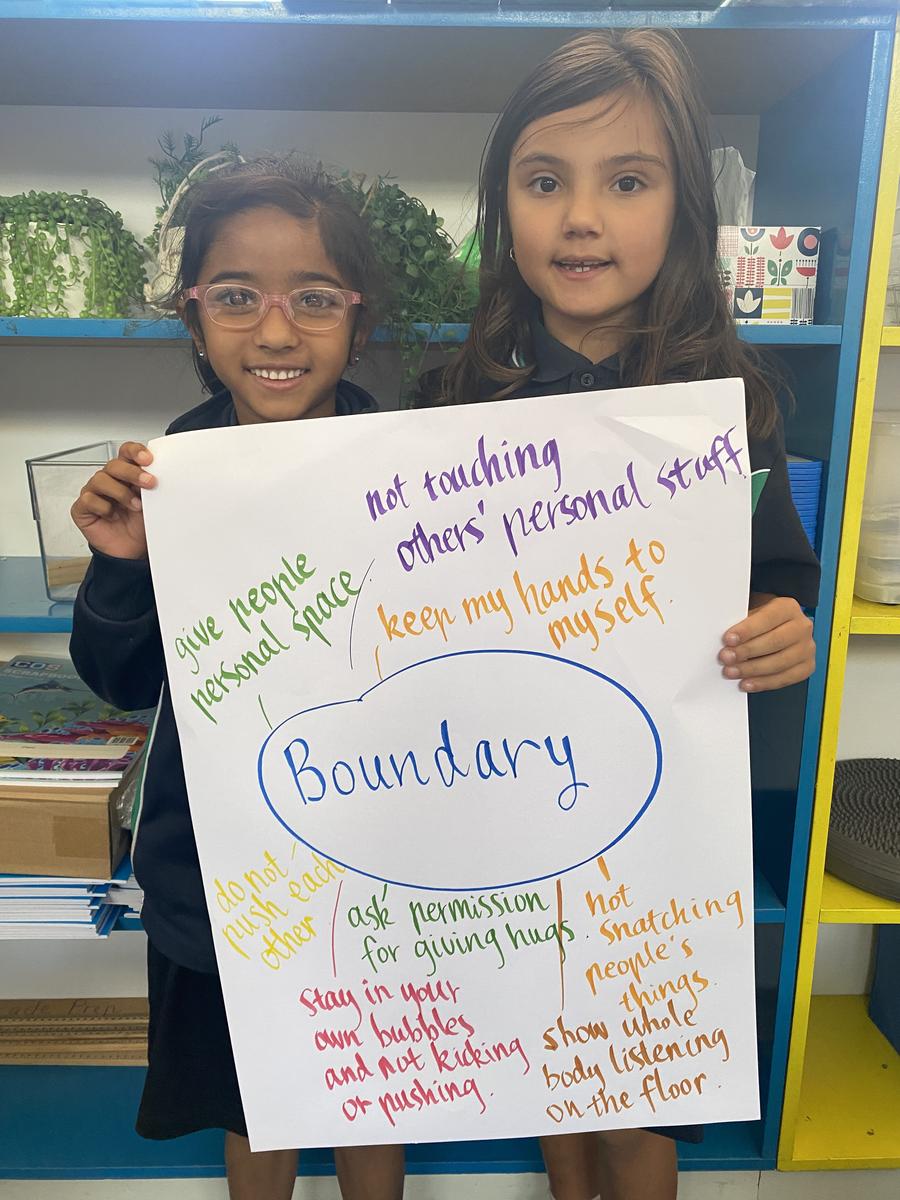 not touching
others' personal stuff
give people
personal space
keep my hands to
myself.
Boundary
do not
push each
other
ask permission
for giving hugs.
not
snatching
people's
things.
stay in your
own bubbles
and not kicking
or pushing.
show whole
body listening
on the floor.